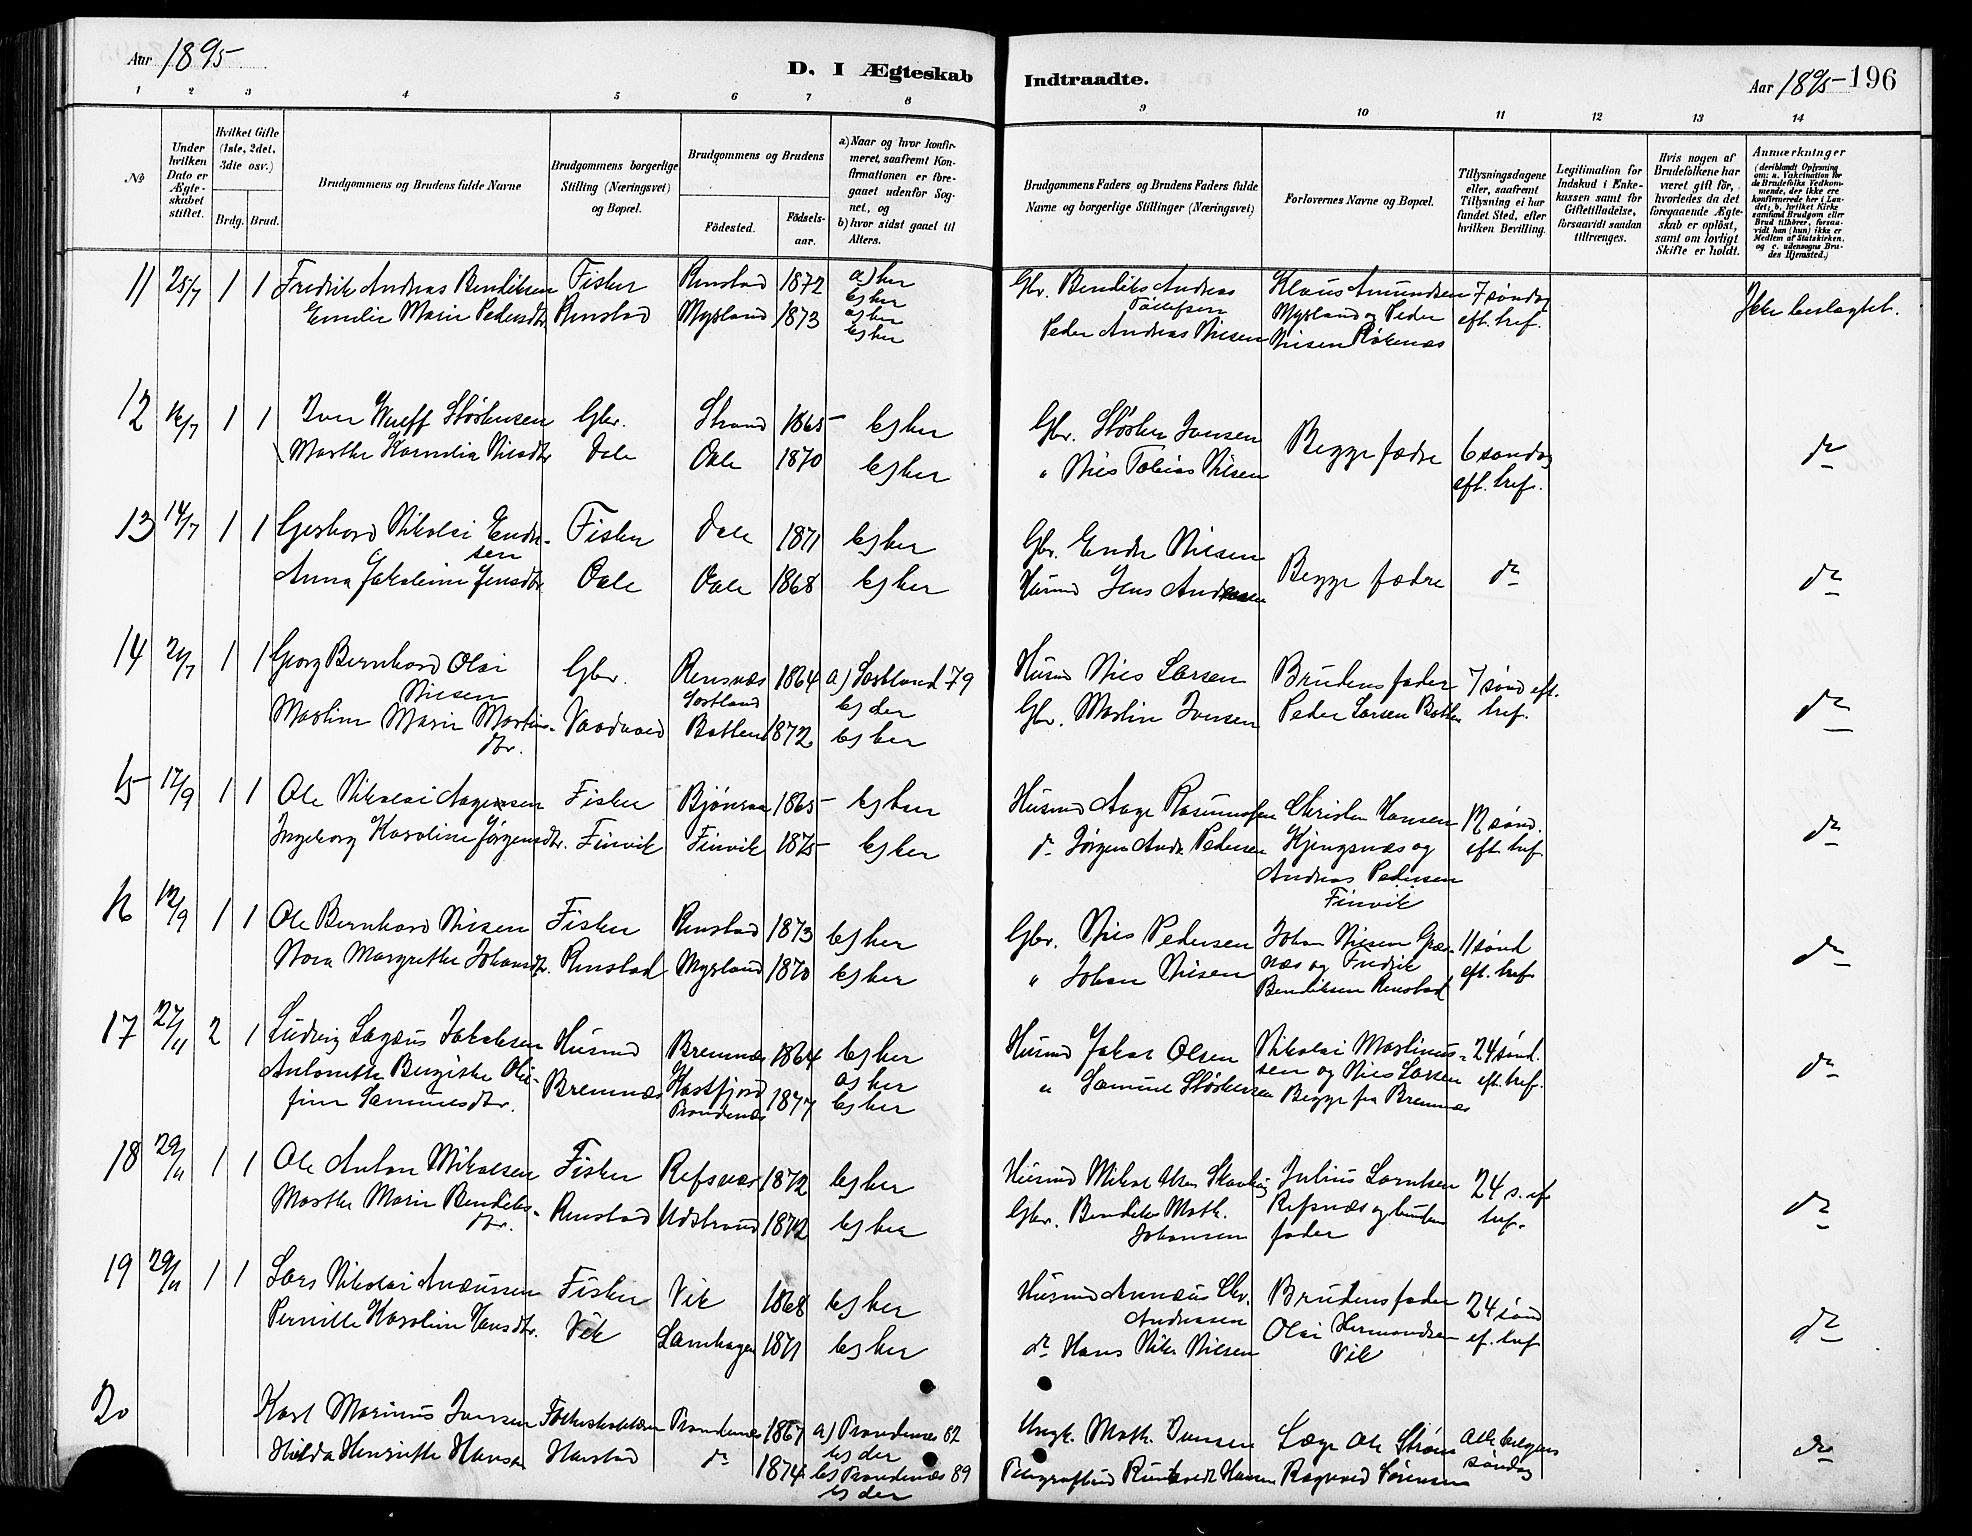 Aar 1895
D. I Ægteskab
Indtraadte.
Aar 1895
196
1 2 3 4 5 6 7 8
9 10 11 12 13 14
No
Under hvilken Dato er Ægteskabet stiftet.
Hvilket Gifte (1ste, 2det, 3die osv.)
Brdg. Brud.
Brudgommens og Brudens fulde Navne
Brudgommens borgerlige Stilling (Næringsvei) og Bopæl.
Brudgommens og Brudens
Fødested.
Fødselsaar.
a) Naar og hvor konfirmeret, saafremt Konfirmationen er foregaaet udenfor Sognet, og
b) hvor sidst gaaet til Alters.
Brudgommens Faders og Brudens Faders fulde Navne og borgerlige Stillinger (Næringsvei)
Forlovernes Navne og Bopæl.
Tillysningsdagene eller, saafremt Tillysning ei har fundet Sted, efter hvilken Bevilling.
Legitimation for Indskud i Enkekassen samt for Giftetilladelse, forsaavidt saadan tiltrænges.
Hvis nogen af Brudefolkene har været gift før, hvorledes da det foregaaende Ægteskab er opløst, samt om lovligt Skifte er holdt.
Anmærkninger
(deriblandt Oplysning om: a. Vakcination for de Brudefolks Vedkommende, der ikke ere konfirmerede her i Landet; b. hvilket Kirkesamfund Brudgom eller Brud tilhører, forsaavidt han (hun) ikke er Medlem af Statskirken, og c. udensogns Brudes Hjemsted.)
11 25/7 1 1 Fredrik Andreas Bendiksen Fisker Renstad 1872 a) her b) her Gbr. Bendiks Andreas Tollefsen Klaus Amundsen 7 søndag Ikke beslægtet.
Emelie Marie Pedersdtr Renstad Myrland 1873 a) her b) her Peder Andreas Nilsen Myrland og Peder Nilsen Røkenæs eft. tref.
12 1 1 Iver Wulff Størkersen Gbr. Strand 1865 b) her Gbr. Størker Iversen Begge fædre 6 søndag do
Marthe Kornelia Nilsdtr Dale Dale 1870 b) her " Nils Tobias Nilsen eft. tref.
13 14/7 1 1 Gerhard Nikolai Endresen Fisker Dale 1871 b) her Gbr. Endre Nilsen Begge fædre do do
Anna Jakobine Jensdtr. Dale Dale 1868 b) her Husmd Jens Andreassen
14 21/7 1 1 Georg Bernhard Olai Nilsen Gbr. Rensnæs Sortland 1864 a) Sortland 79 b) der Husmd Nils Larsen Brudens fader 7 sønd eft. do
Martine Marie Martinsdtr. Vaadvoid Botten 1872 b) her Gbr. Martin Iversen Peder Larsen Botten tref.
15 17/9 1 1 Ole Nikolai Aagesen Fisker Bjønraa 1865 b) her Husmd Aage Rasmussen Christen Hansen 12 sønd. do
Ingeborg Karoline Jørgensdtr. Finvik Finvik 1875 b) her do Jørgen Andr. Pedersen Kjengsnæs og Andreas Pedersen Finvik eft. tref.
16 12/9 1 1 Ole Bernhard Nilsen Fisker Renstad 1873 b) her Gbr. Nils Pedersen Johan Nilsen Græsnæs og Fredrik 11 sønd do
Nora Margrethe Johansdtr. Renstad Myrland 1870 b) her " Johan Nilsen Bendiksen Renstad eft. tref.
17 27/11 2 1 Ludvig Jakobsen Husmd Bremnæs 1864 b) her Husmd Jakob Olsen Nikolai Martinussen og Nils Larsen 24 sønd. do
Antonette Olufine Samuelsdtr. Bremnæs Kasfjord Trondenæs 1877 a) her b) her " Samuel Størkersen Begge fra Bremnæs eft. tref.
18 29/11 1 1 Ole Anton Mikalsen Fisker Refsnæs 1872 b) her Husmd Mikal Julius Lorntsen 24 s. eft do
Marthe Marie Bendiksdtr. Renstad Udstrand 1872 b) her Gbr. Bendik Math. Johansen Refsnæs og brudens fader tref.
19 29/11 1 1 Lars Nikolai Annæussen Fisker Vik 1868 b) her Husmd Annæus Chr. Andreasen Brudens fader 24 sønd do
Pernille Karoline Hansdtr. Vik Samhagen 1871 b) her do Hans Nik. Nilsen Olai Hermandsen Vik ef. tref.
20 Karl Marinus Iversen Folkeskolelærer Trondenæs 1867 a) Trondenæs 82 b) der Math. Iversen Læge Ole Strøm Alle helgens søndag do
Hilda Henriette Hansen Harstad do 1874 a) Trondenæs 89 b) der Telegrafbud Hansen Ragnvald Sørensen